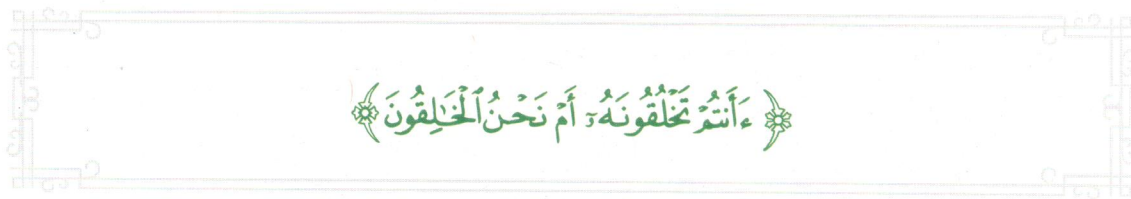 ﴿ ءَأَنتُمْ تَخْلُقُونَهُۥٓ أَمْ نَحْنُ ٱلْخَٰلِقُونَ ﴾